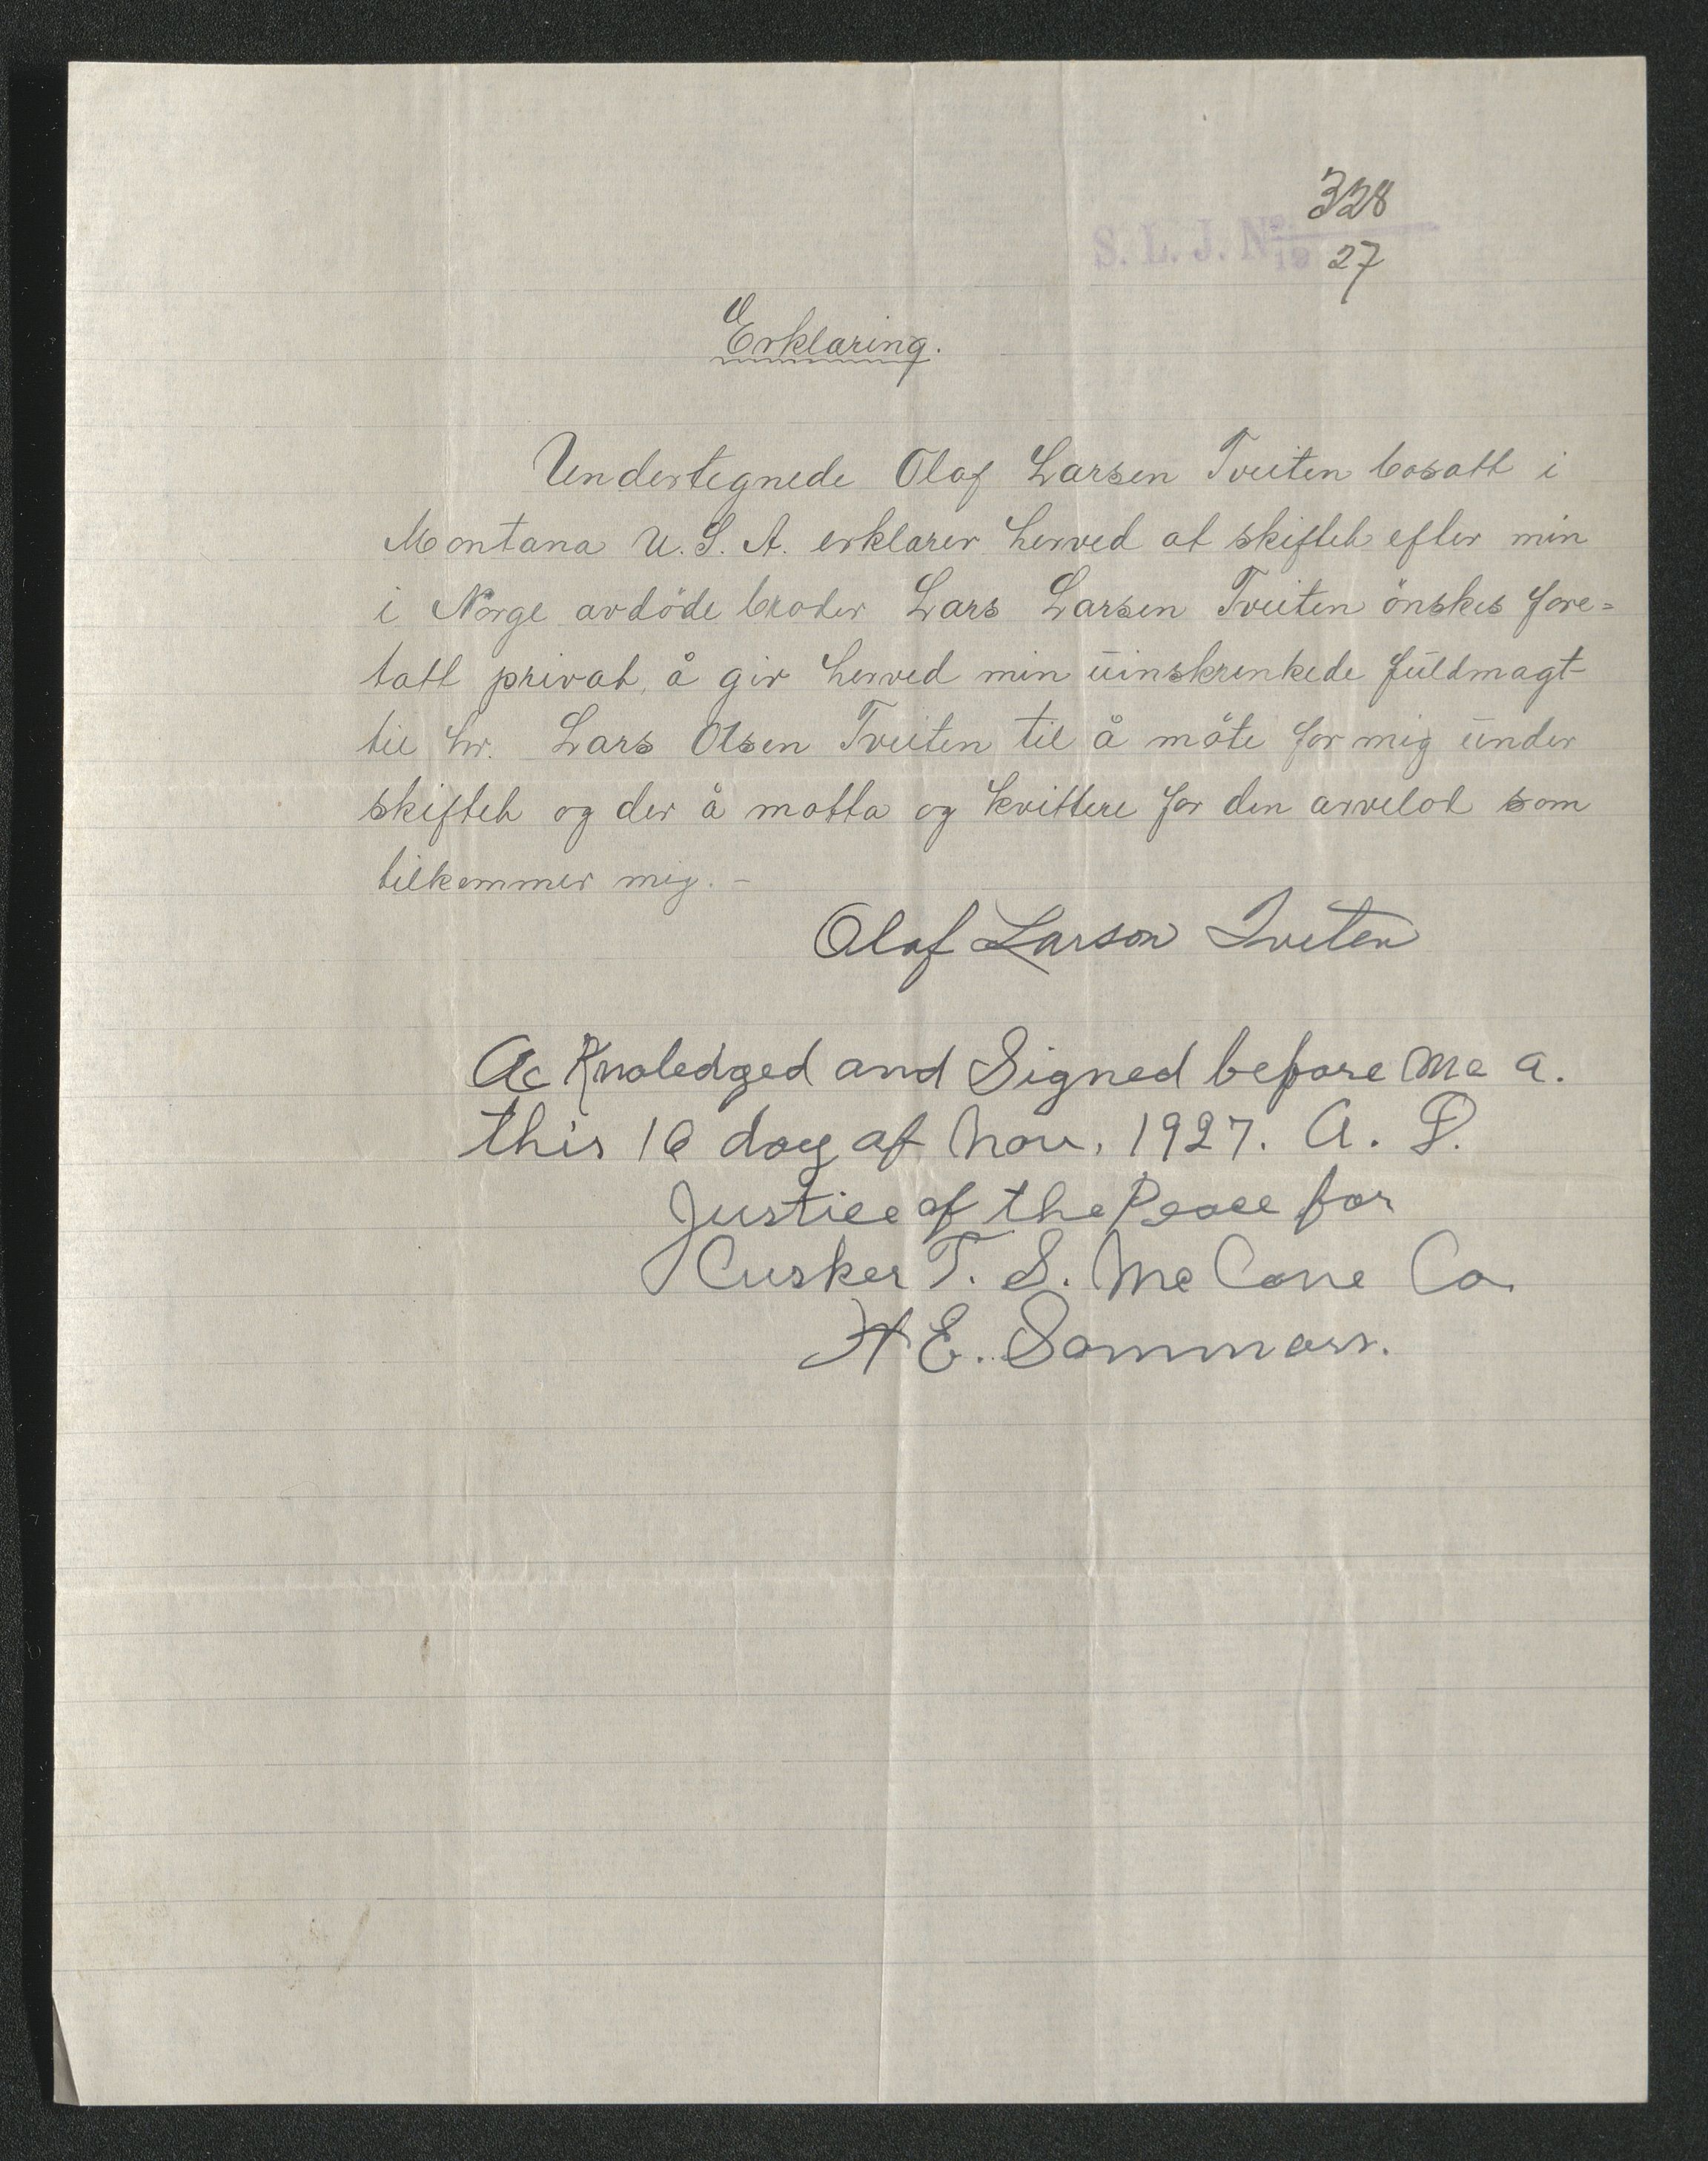 328
S. L. J. No
19 27
Erklaring.
Undertegnede Olaf Larsen Tveiten bosatt i
Montana U. S. A. erklarer herved at skiftet efter min
i Norge avdöde broder Lars Larsen Tveiten önskes fore=
tatt privat, å gir herved min uinskrenkede fuldmagt
til hr. Lars Olsen Tveiten til å möte for mig under
skiftet og der å motta og kvittere for den arvelot som
tilkommer mig. -
Olaf Larson Tveten
Ac Knoledged and Signed before Me a.
this 16 day of Nov. 1927. A. D.
Justice of the Peace for
Cusker T. S. Mc Cone Co
H E. Sommars.